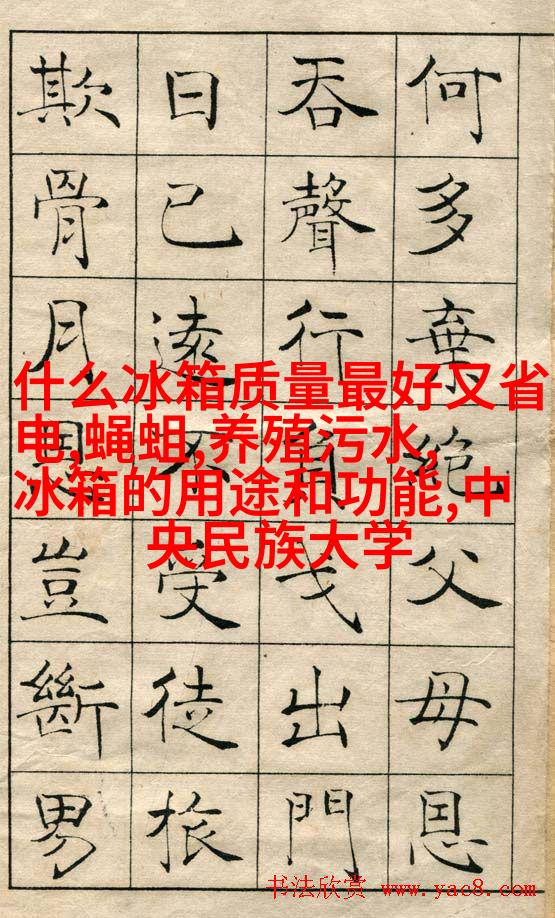 何多棄絕父母恩
吞聲行負戈出門
日已遠不受徒旅
欺骨月恩豈斷男
什么冰箱质量最好又省
电,蝇蛆,养殖污水,
冰箱的用途和功能,中
央民族大学
书法欣赏 www.yac8.com